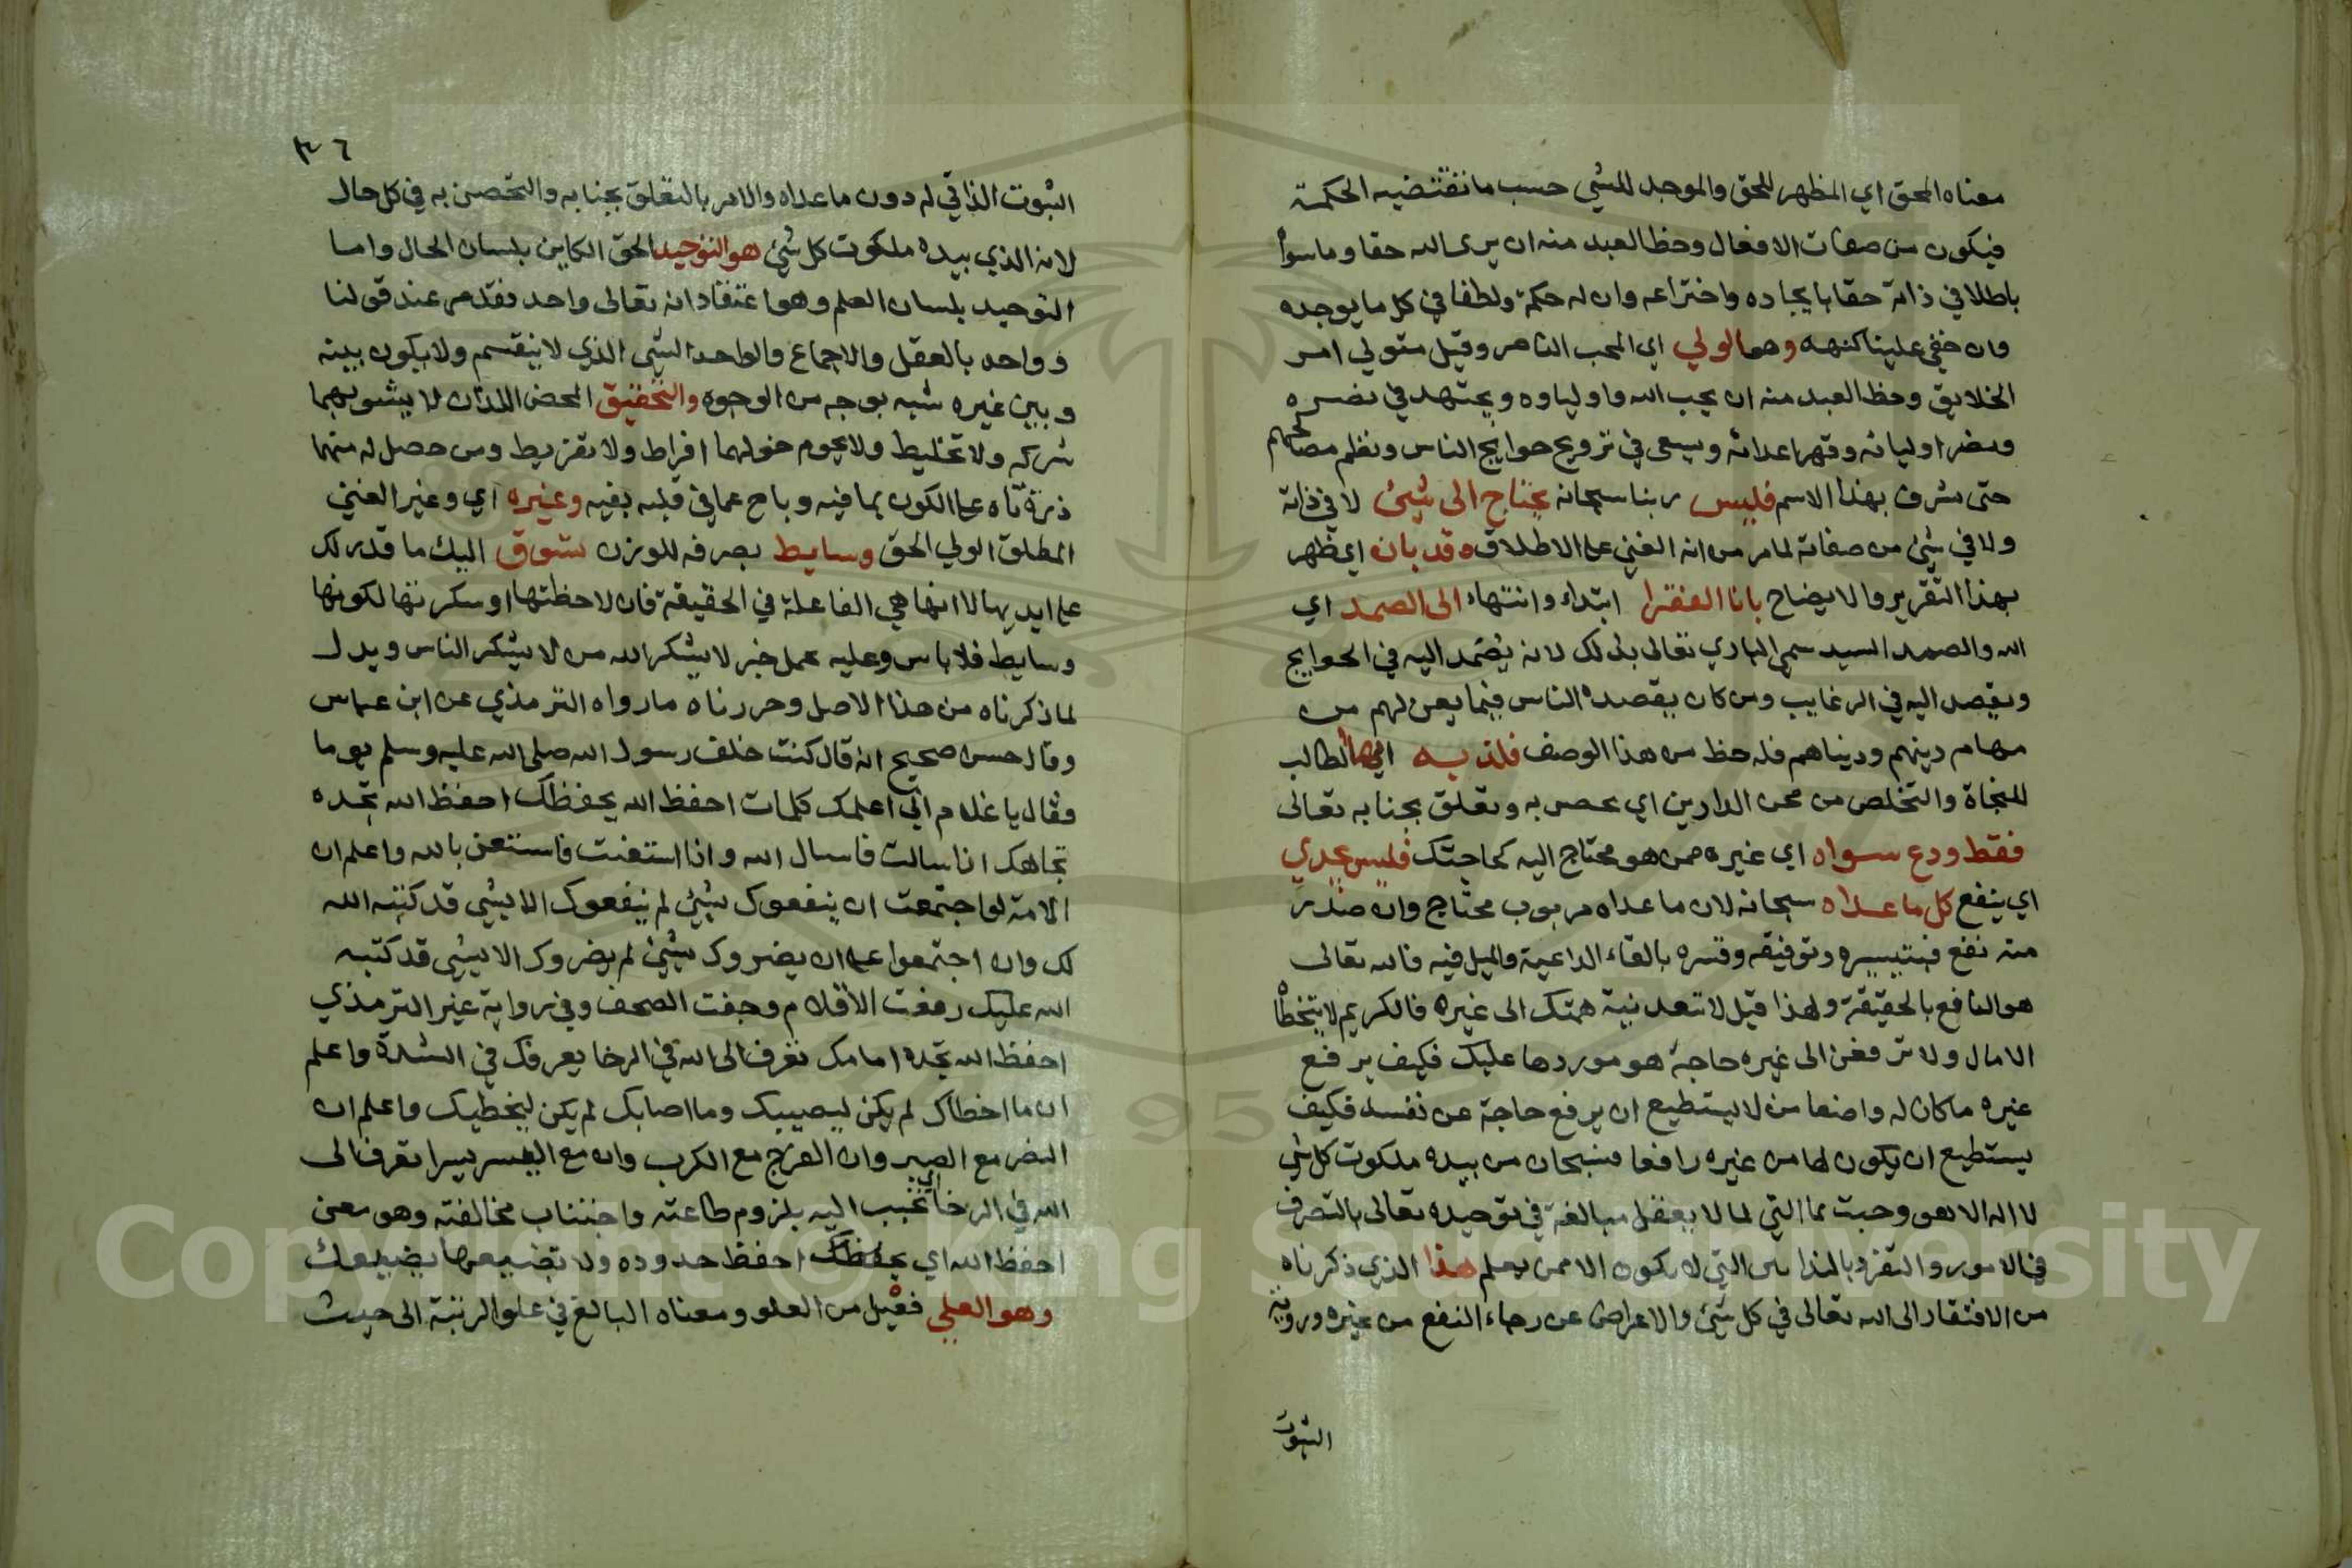 معناه المحق اي المظهر للحق والموجد للشي حسب ما تقتضيه الحكمة
فيكون من صفات الافعال وحظ العبد منه ان يرى الله حقا وما سواه
باطلا في ذاته حقا بايجاده واختراعه وان له حكمة ولطفا في كل ما يوجده
وان خفي علينا كنهه وهو الولي اي المحب الناصر وقيل متولي امر
الخلايق وحظ العبد منه ان يحب الله واولياوه ويجتهد في نصره
ونصر اوليائه وقهر اعدائه ويسعى في ترويج حوايج الناس ونظم مصالحهم
حتى يشرف بهذا الاسم فليس ربنا سبحانه يحتاج الى شيئ لا في ذاته
ولا في شئ من صفاته لما مر من انه الغني على الاطلاق وقد بان اي ظهر
بهذا التقرير والايضاح بانا الفقرا ابتداء وانتهاء الى الصمد اي
الله والصمد السيد سمي الباري تعالى بذلك لانه يصمد اليه في الحوايج
ويقصد اليه في الرغايب ومن كان يقصده الناس فيما يعن لهم من
مهام دينهم ودنياهم فله حظ من هذا الوصف فلذ به ايها الطالب
للنجاة والتخلص من محن الدارين اي تحصن به وتعلق بجنابه تعالى
فقط ودع سواه اي غيره ممن هو محتاج اليه كحاجتك فليس يجدي
اي ينفع كل ما عداه سبحانه لان ما عداه مربوب محتاج وان صدر
منه نفع فبتيسيره وتوفيقه وقسره بالقاء الداعية والميل فيه فالله تعالى
هو النافع بالحقيقة ولهذا قيل لا تعد نية همتك الى غيره فالكريم لا تتخطاه
الامال ولا ترفعن الى غيره حاجة هو موردها عليك فكيف يرفع
غيره ما كان له واضعا من لا يستطيع ان يرفع حاجة عن نفسه فكيف
يستطيع ان يكون لها من غيره رافعا فسبحان من بيده ملكوت كل شي
لا اله الا هو وحيث بما التي لما لا يعقل مبالغة في توحيده تعالى بالتصرف
في الامور والتفرد بالتي لا يكون الا ممن يعلم هذا الذي ذكرناه
من الافتقار الى الله تعالى في كل شئ والاعراض عن رجاء النفع من غيره وروية
الثبوت
٣٦
الثبوت الذاتي له دون ما عداه والامر بالتعلق بجنابه والتحصن به في كل حال
لانه الذي بيده ملكوت كل شئ هو التوحيد الحق الكاين بلسان الحال واما
التوحيد بلسان العلم وهو اعتقاد انه تعالى واحد فقد مر عند قولنا
وواحد بالعقل والاجماع والواحد الشي الذي لا ينقسم ولا يكون بينه
وبين غيره شبه بوجه من الوجوه والتحقيق المحض اللذان لا يشوبهما
شركه ولا تخليط ولا يحوم حولهما افراط ولا تفريط ومن حصل له منهما
ذرة تاه على الكون بما فيه وباح عما في قلبه بفيه وغيره اي وغير الغني
المطلق الولي الحق وسايط بصرفه للوزن تسوق اليك ما قدر لك
على ايديها لا انها هي الفاعلة في الحقيقة فان لاحظتها او شكرتها لكونها
وسايط فلا باس وعليه عمل خبر لا يشكر الله من لا يشكر الناس ويدل
لما ذكرناه من هذا الاصل وحررناه ما رواه الترمذي عن ابن عباس
وقال حسن صحيح انه قال كنت خلف رسول الله صلى الله عليه وسلم يوما
فقال يا غلام اني اعلمك كلمات احفظ الله يحفظك احفظ الله تجده
تجاهك اذا سالت فاسال الله واذا استعنت فاستعن بالله واعلم ان
الامة لو اجتمعت ان ينفعوك بشيئ لم ينفعوك الا بشي قد كتبه الله
لك وان اجتمعوا على ان يضروك بشيئ لم يضروك الا بشي قد كتبه
الله عليك رفعت الاقلام وجفت الصحف وفي رواية غير الترمذي
احفظ الله تجده امامك تعرف الى الله في الرخا يعرفك في الشدة واعلم
ان ما اخطاك لم يكن ليصيبك وما اصابك لم يكن ليخطيك واعلم ان
النصر مع الصبر وان الفرج مع الكرب وان مع العسر يسرا تعرف الى
الله في الرخا اي تحبب اليه بلزوم طاعته واجتناب مخالفته وهو معنى
احفظ الله اي يحفظك احفظ حدوده ولا تضيعها يضيعك
وهو العلي فعيل من العلو ومعناه البالغ في علو الرتبة الى حيث